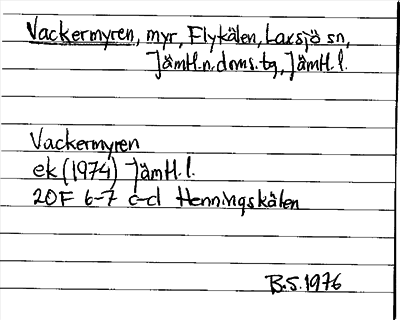 Vackermyren, myr, Flykälen, Laxsjö sn,
Jämtl.n.doms.tg, Jämtl.l.
Vackermyren
ek (1974) Jämtl.l.
20F 6-7 c-d Henningskälen
B.S. 1976